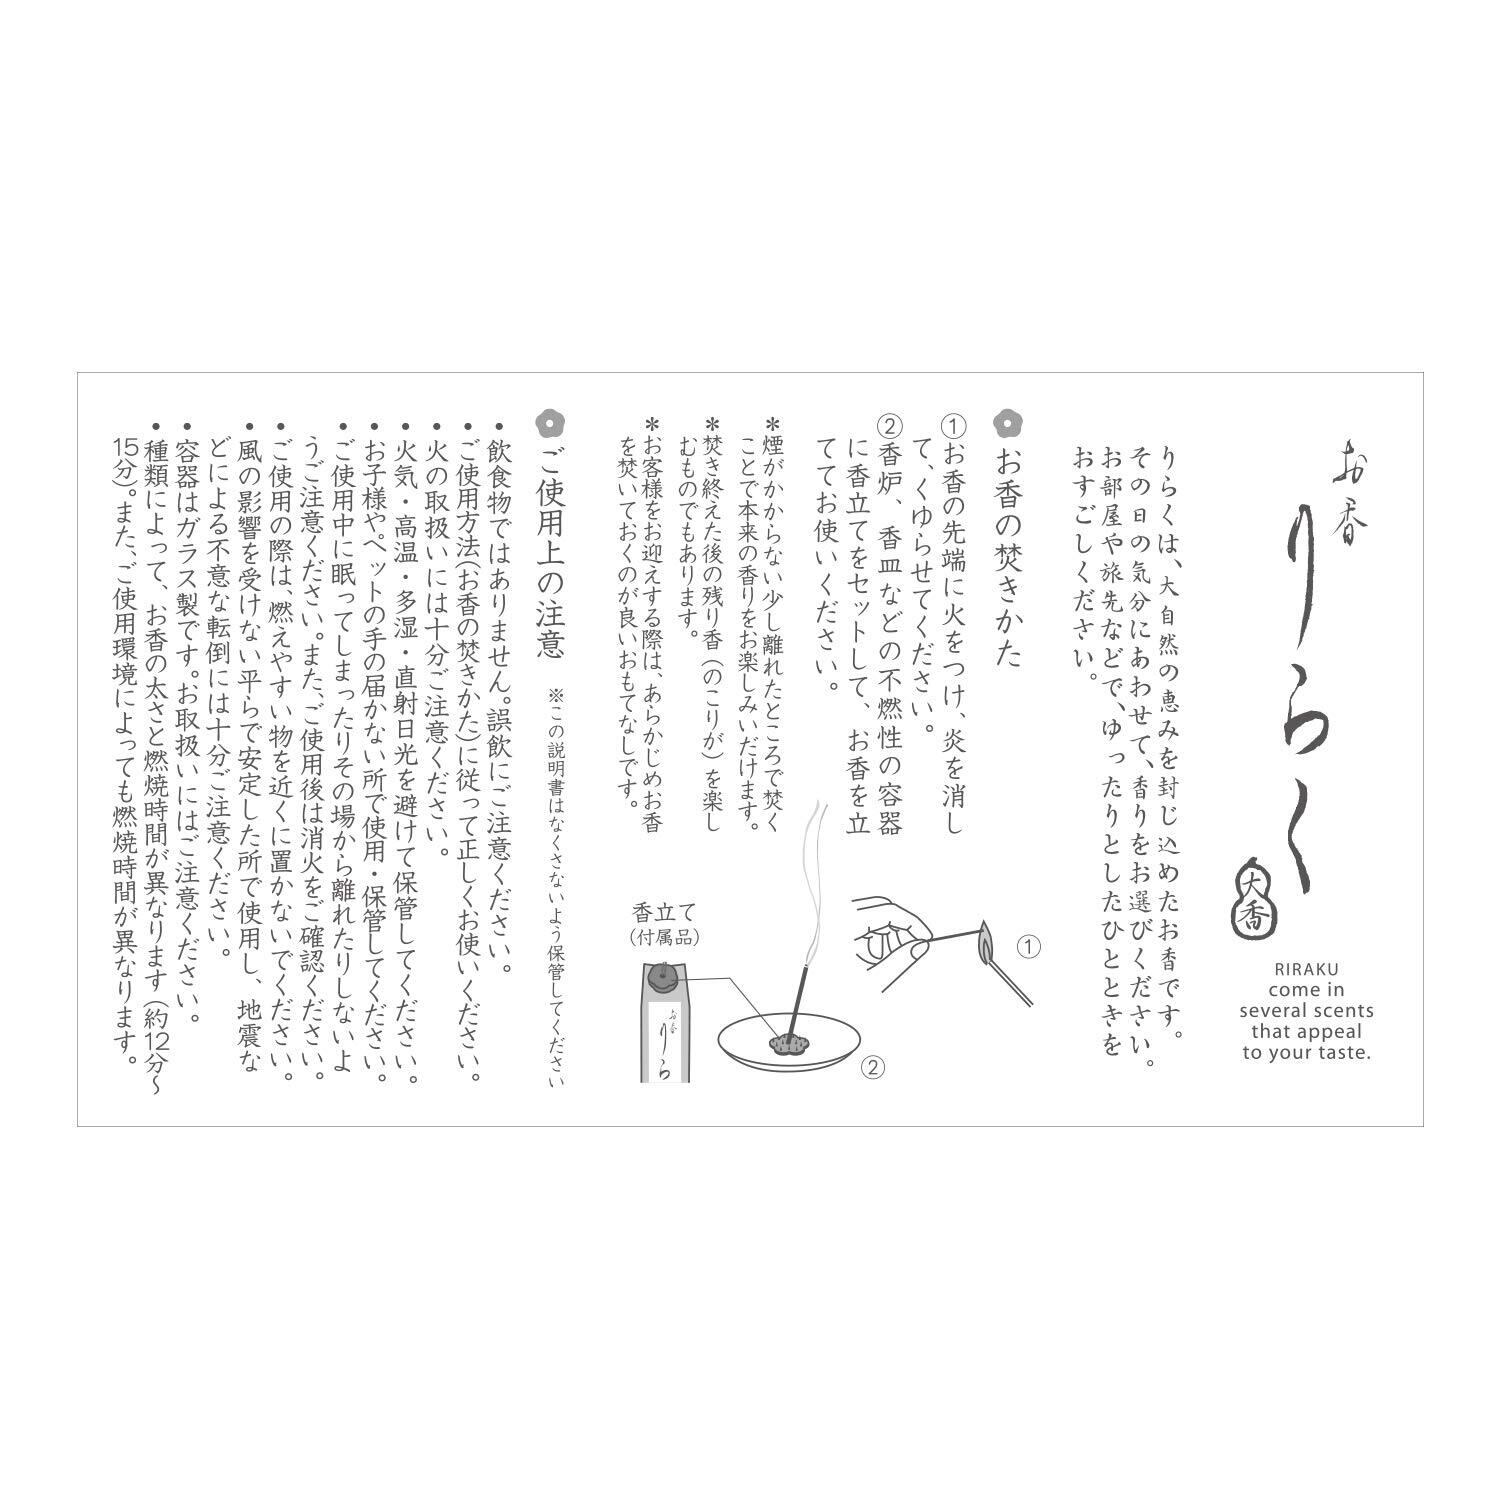 お香
りらく
大香
RIRAKU
come in
several scents
that appeal
to your taste.
りらくは、大自然の恵みを封じ込めたお香です。
その日の気分にあわせて、香りをお選びください。
お部屋や旅先などで、ゆったりとしたひとときを
おすごしください。
お香の焚きかた
①お香の先端に火をつけ、炎を消し
て、くゆらせてください。
②香炉、香皿などの不燃性の容器
に香立てをセットして、お香を立
ててお使いください。
＊煙がかからない少し離れたところで焚く
ことで本来の香りをお楽しみいだけます。
＊焚き終えた後の残り香（のこりが）を楽し
むものでもあります。
＊お客様をお迎えする際は、あらかじめお香
を焚いておくのが良いおもてなしです。
①
②
香立て
（付属品）
お香
りら
ご使用上の注意 ※この説明書はなくさないよう保管してください
・飲食物ではありません。誤飲にご注意ください。
・ご使用方法（お香の焚きかた）に従って正しくお使いください。
・火の取扱いには十分ご注意ください。
・火気・高温・多湿・直射日光を避けて保管してください。
・お子様やペットの手の届かない所で使用・保管してください。
・ご使用中に眠ってしまったりその場から離れたりしないよ
うご注意ください。また、ご使用後は消火をご確認ください。
・ご使用の際は、燃えやすい物を近くに置かないでください。
・風の影響を受けない平らで安定した所で使用し、地震な
どによる不意な転倒には十分ご注意ください。
・容器はガラス製です。お取扱いにはご注意ください。
・種類によって、お香の太さと燃焼時間が異なります（約12分～
15分）。また、ご使用環境によっても燃焼時間が異なります。